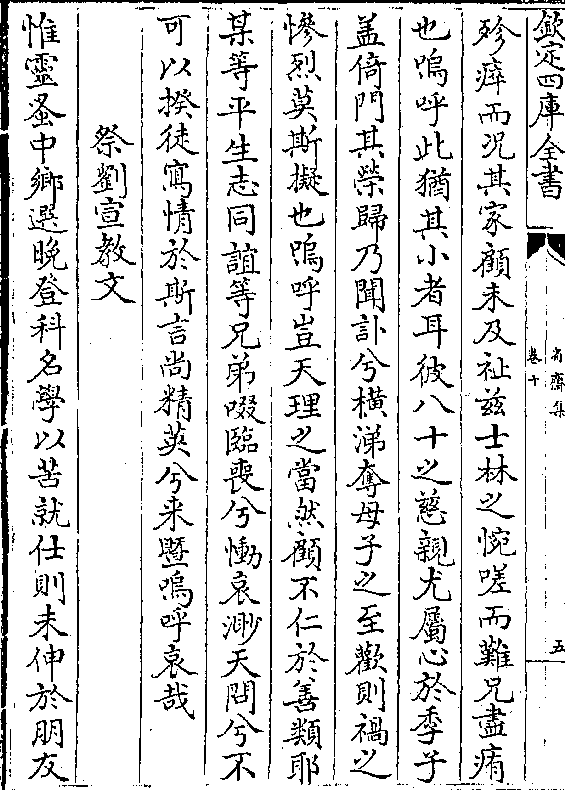 欽定四庫全書
省齋集
卷十
五
殄瘁而况其家顧未及祉兹士林之惋嗟而難兄盡痏
也嗚呼此猶其小者耳彼八十之慈親尤屬心於季子
盖倚門其榮歸乃聞訃兮横涕奪母子之至歡則禍之
慘烈莫斯擬也嗚呼豈天理之當然顧不仁於善類耶
某等平生志同誼等兄弟啜臨喪兮慟哀渺天問兮不
可以揆徒寫情於斯言尚精英兮来暨嗚呼哀哉
祭劉宣教文
惟靈蚤中鄉選晚登科名學以苦就仕則未伸於朋友